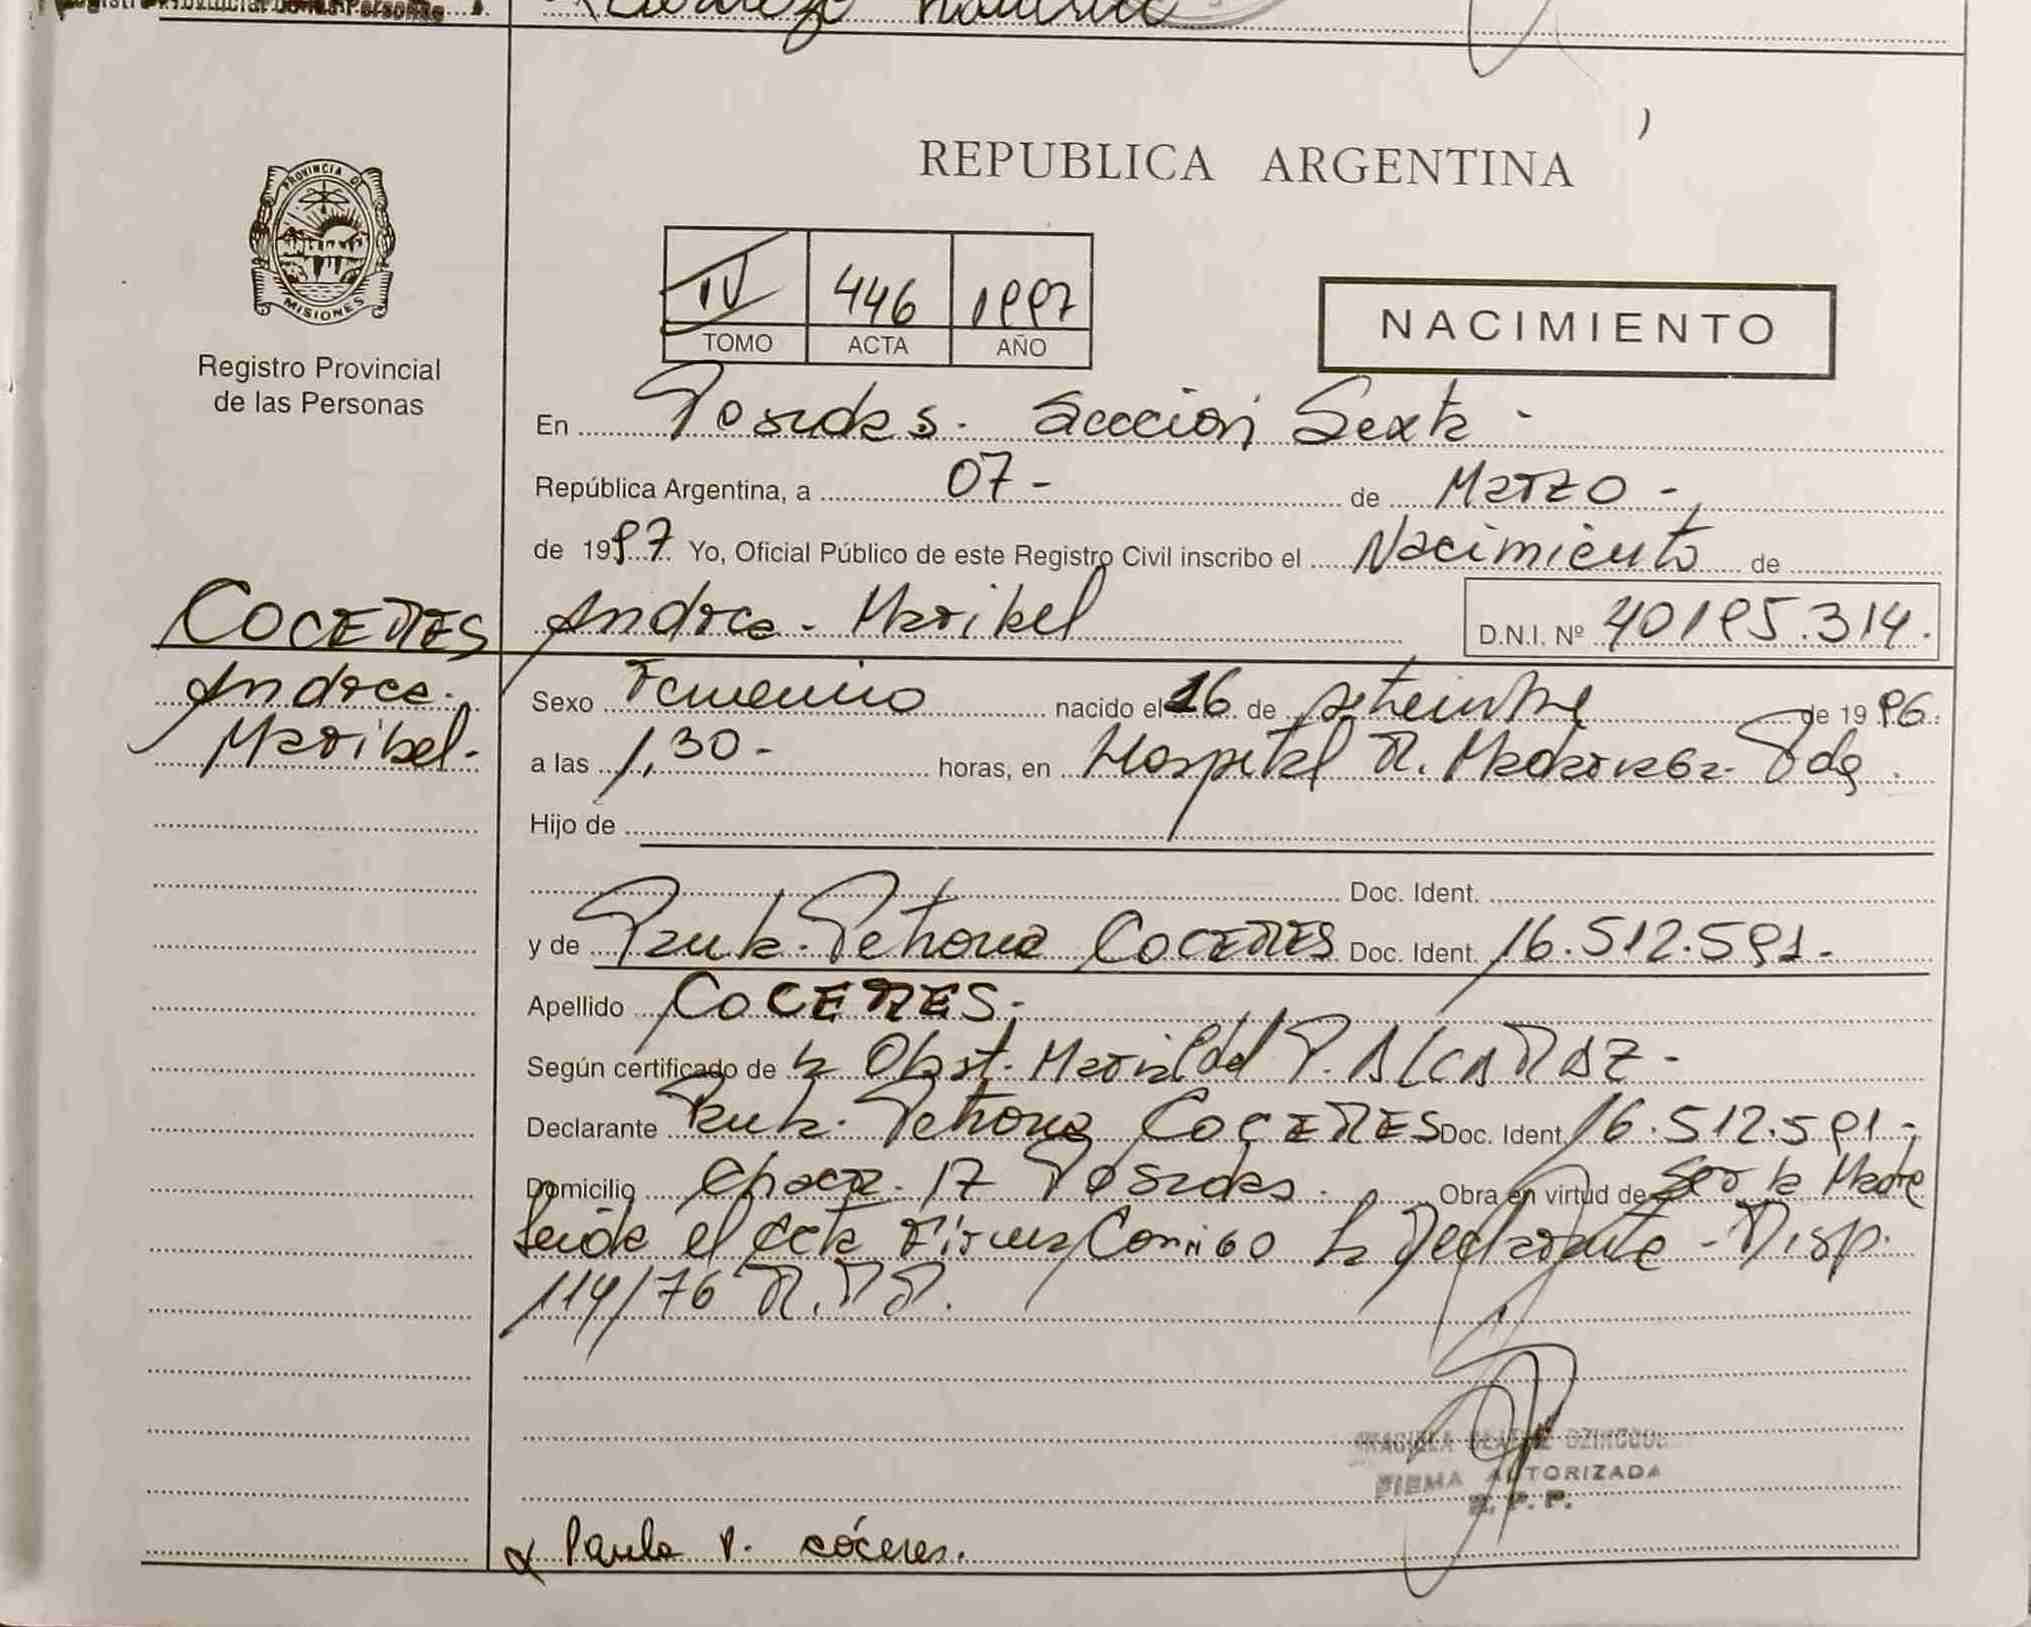 Registro Provincial de las Personas
REPUBLICA ARGENTINA
PROVINCIA DE
MISIONES
Registro Provincial
de las Personas
IV 446 1997
TOMO ACTA AÑO
NACIMIENTO
En Posadas. Sección Sexta -
República Argentina, a 07 - de Marzo -
de 1997 Yo, Oficial Público de este Registro Civil inscribo el Nacimiento de
COCERES Andrea - Maribel D.N.I. Nº 40195.314.
Andrea.
Maribel.
Sexo Femenino nacido el 26 de setiembre de 1996.
a las 1,30 - horas, en Hospital R. Madariaga - Pdas.
Hijo de
Doc. Ident.
y de Paula - Petrona COCERES Doc. Ident. 16.512.591 -
Apellido COCERES.
Según certificado de la Obst. P. ALCARAZ -
Declarante Paula - Petrona COCERES Doc. Ident. 16.512.591 -
Domicilio Chacra - 17 Posadas. Obra en virtud de Ser la Madre
Leída el acta Firma Conmigo la Declarante - Disp.
114/76 R.P.P.
FIRMA AUTORIZADA
R. P. P.
Paula P. cóceres.